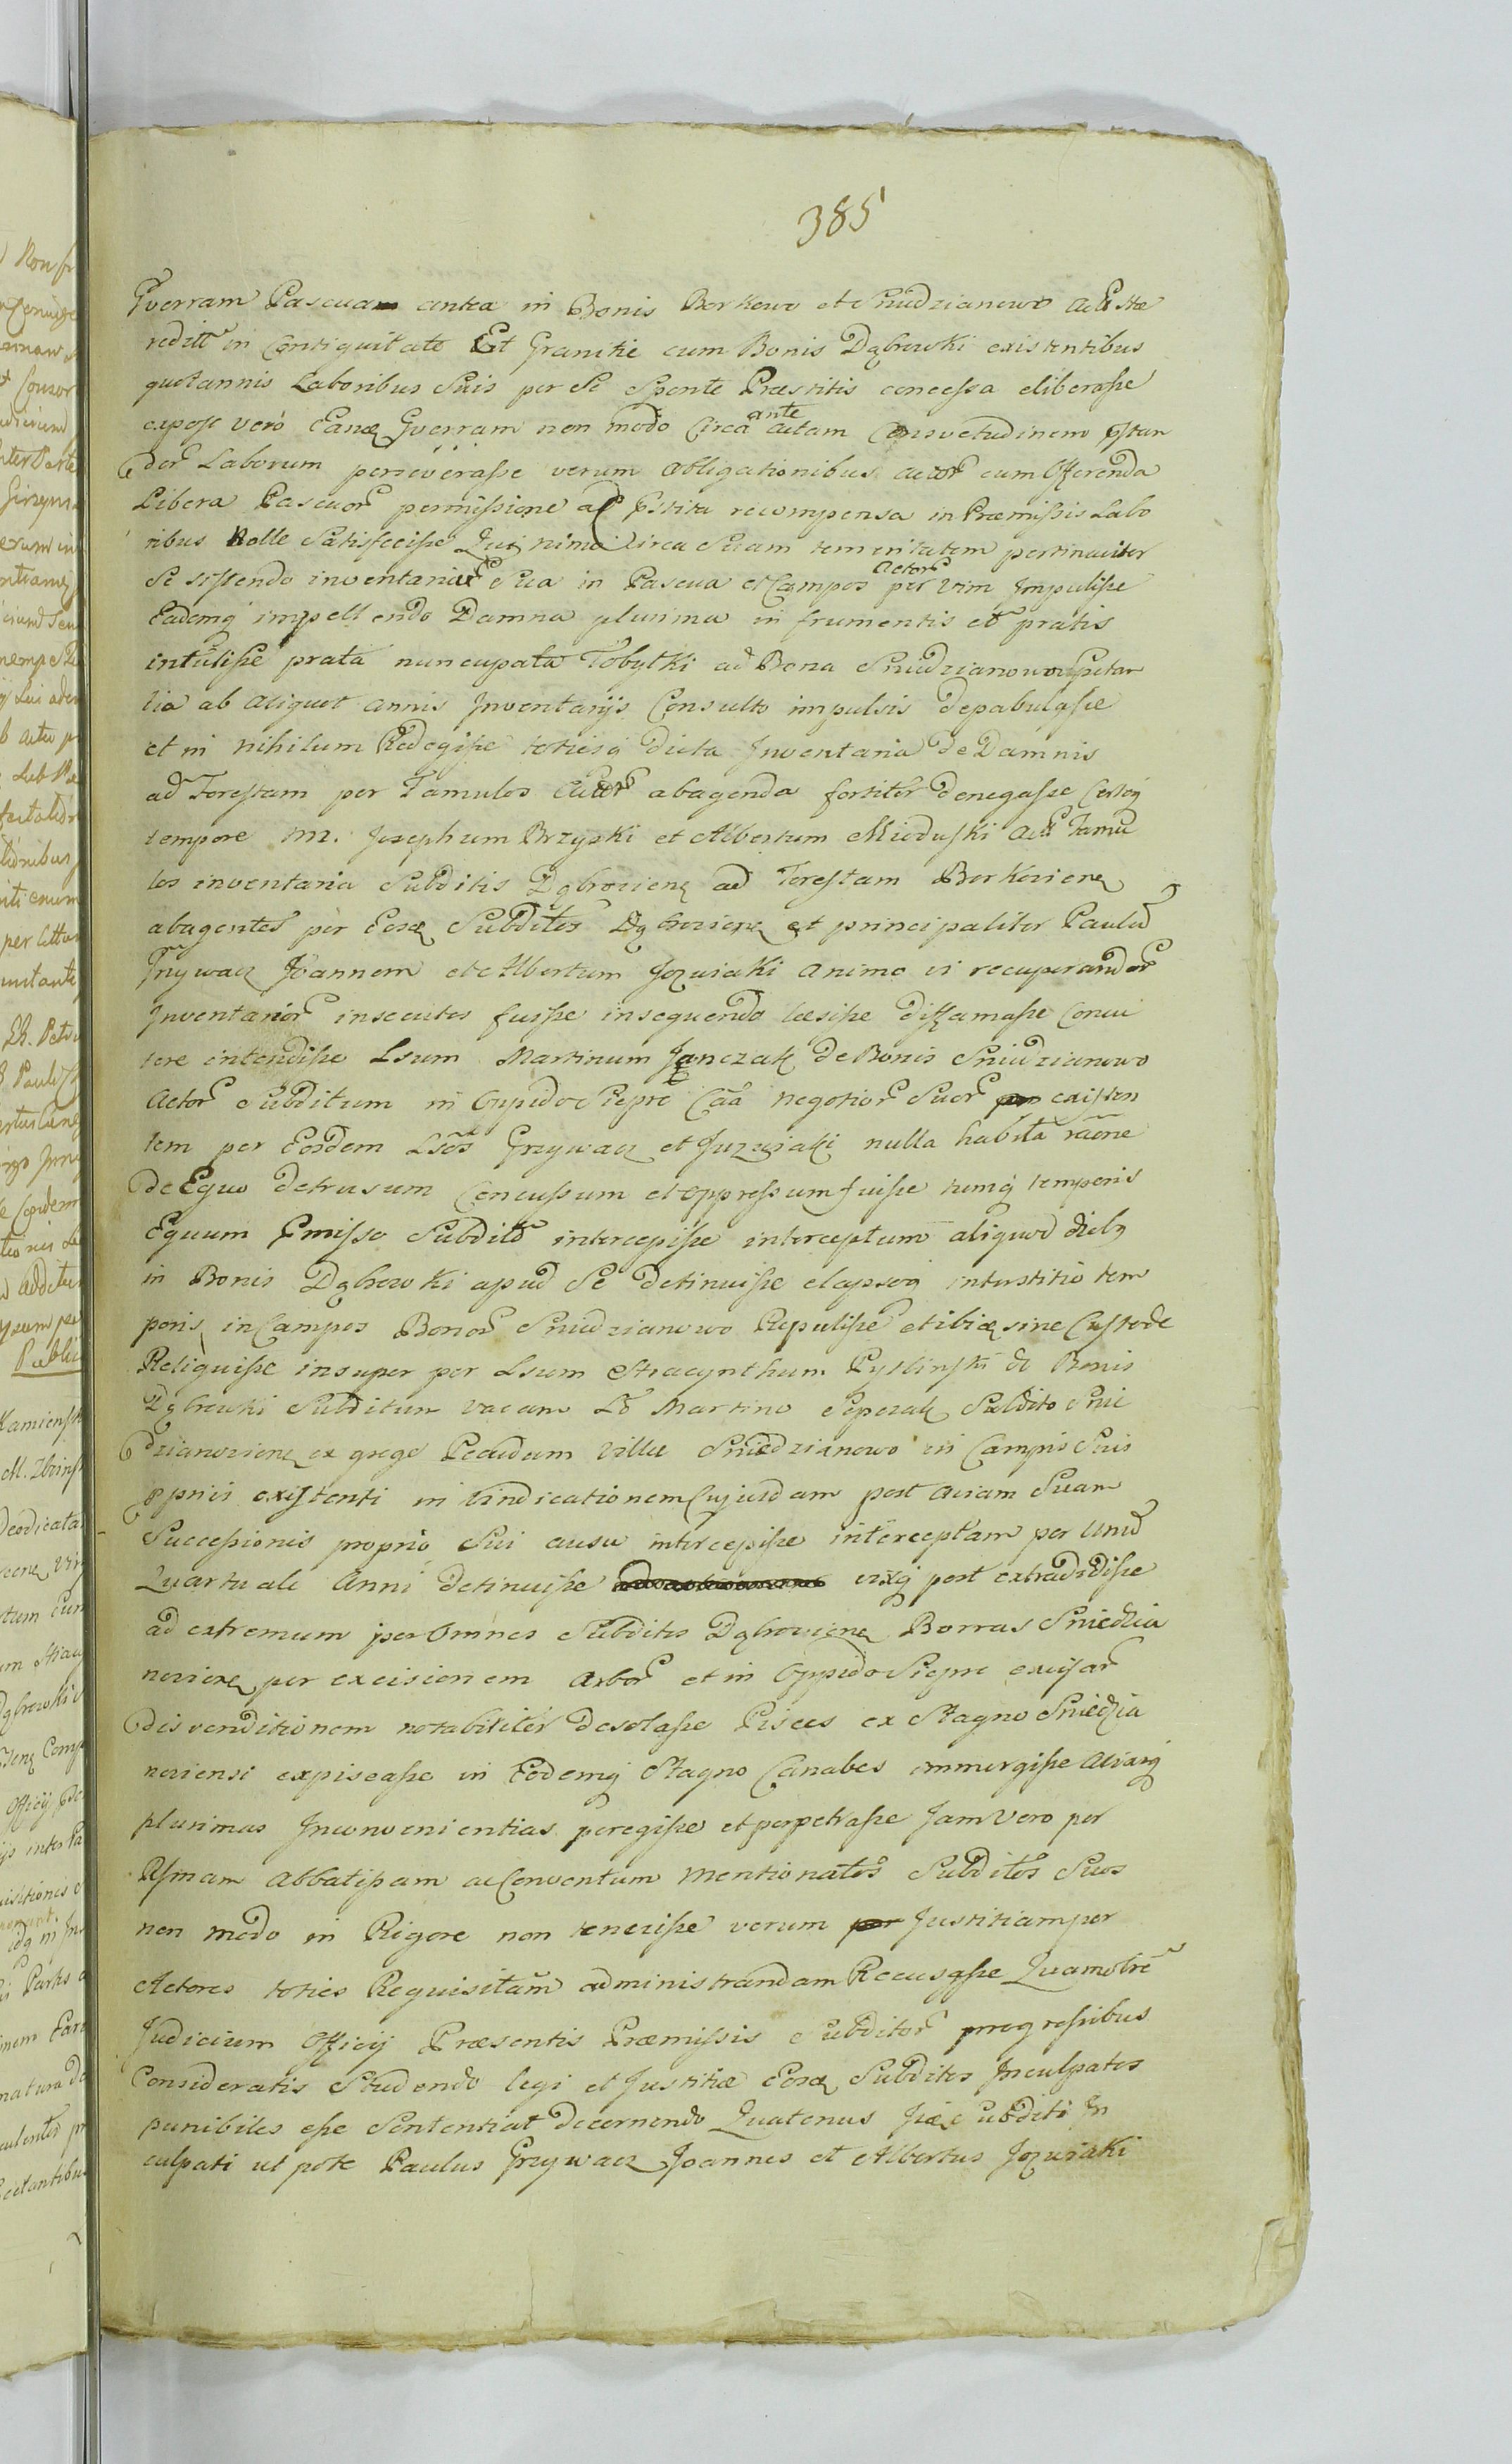 385
Gverram Pascuam antea in Bonis Borkowo et Sniedzianowo
redit in Contiguitate Et Granitie cum Bonis Dąbrowki existentibus
quotannis Laboribus Suis per Se Sponte Præstitis concessa eliberasse
expost verò Gverram non modo Circa ante actam Consvetudinem
Laborum perseverasse verum obligationibus actor cum Offerenda
Libera Pascuor permissione ac recompensa in Præmissis Labo
ribus Nolle Satisfecisse Circa Suam temeritatem pertinaciter
Se sistendo inventaria Sua in Pascua et Campos Actor per Vim Impulisse
Eademq impellendo Damna plurima in frumentis et pratis
intulisse prata nuncupata Tobyłki ad Bona Sniedzianowo
ab aliquot annis Inventarijs Consulto impulsis depabulasse
et in nihilum Redegisse totiesq dicta Inventaria de Damnis
ad Forestam per Famulos Actor abagenda fortiter denegasse
tempore M. Josephum Brzyski et Albertum Mieduski Act Famu
los inventaria Subditis Dąbrovien ad Forestam Borkovien
abagentes per Eosq Subditos Dąbrovien et principaliter Paulu
Grzywacz Joannem et Albertum Jozwiaki animo vi recuperandor
Inventarior insecutos fuisse insequendo læsisse diffamasse
tere intendisse Lsum Martinum Janczak de Bonis Sniedzianowo
Actor Subditum in Oppido Siepre Caa negotior Suor existen
tem per Eosdem Lsos Grzywacz et Jozwiaki nulla habita raone
de Equo detrusum Concussum et oppressum fuisse tumq temporis
Equum Subdito intercepisse interceptum aliquod dieb
in Bonis Dąbrowki apud Se detinuisse elapsoq interstitio tem
poris in Campos Bonor Sniedzianowo Repulisse et ibiq sine Custode
Reliquisse insuper per Lsum Hyacynthum de Bonis
Dąbrowki Subditum vacam Lo Martino Subdito Snie
dzianovien ex grege Pecudum Villæ Sniedzianowo in Campis Suis
ppriis existenti in Vindicationem Cujusdam post aviam Suam
Successionis proprio Sui ausu intercepisse interceptam per Unu
Quartuale Anni detinuisse vixq post extradidisse
ad extremum per Omnes Subditos Dąbrovien Borras Sniedzia
novien per excisionem Arbor et in Oppido Siepre excisar
disvenditionem notabiliter desolasse Pisces ex Stagno Sniedzia
noviensi expiscasse in Eodemq Stagno Canabes immergisse aliasq
plurimas Inconvenientias peregisse et perpetrasse Jam Vero per
Rsmam Abbatissam ac Conventum mentionatos Subditos Suos
non modo in Rigore non tenuisse verum Justitiam per
Actores toties Requisitam administrandam Recusasse Quamobre
Judicium Officij Præsentis Præmissis Subditor progressibus
Consideratis Studendo legi et Justitiæ Eosq Subditos Inculpatos
punibiles esse Sententiat decernendo Quatenus Subditi In
culpati ut pote Paulus Grzywacz Joannes et Albertus Jozwiaki